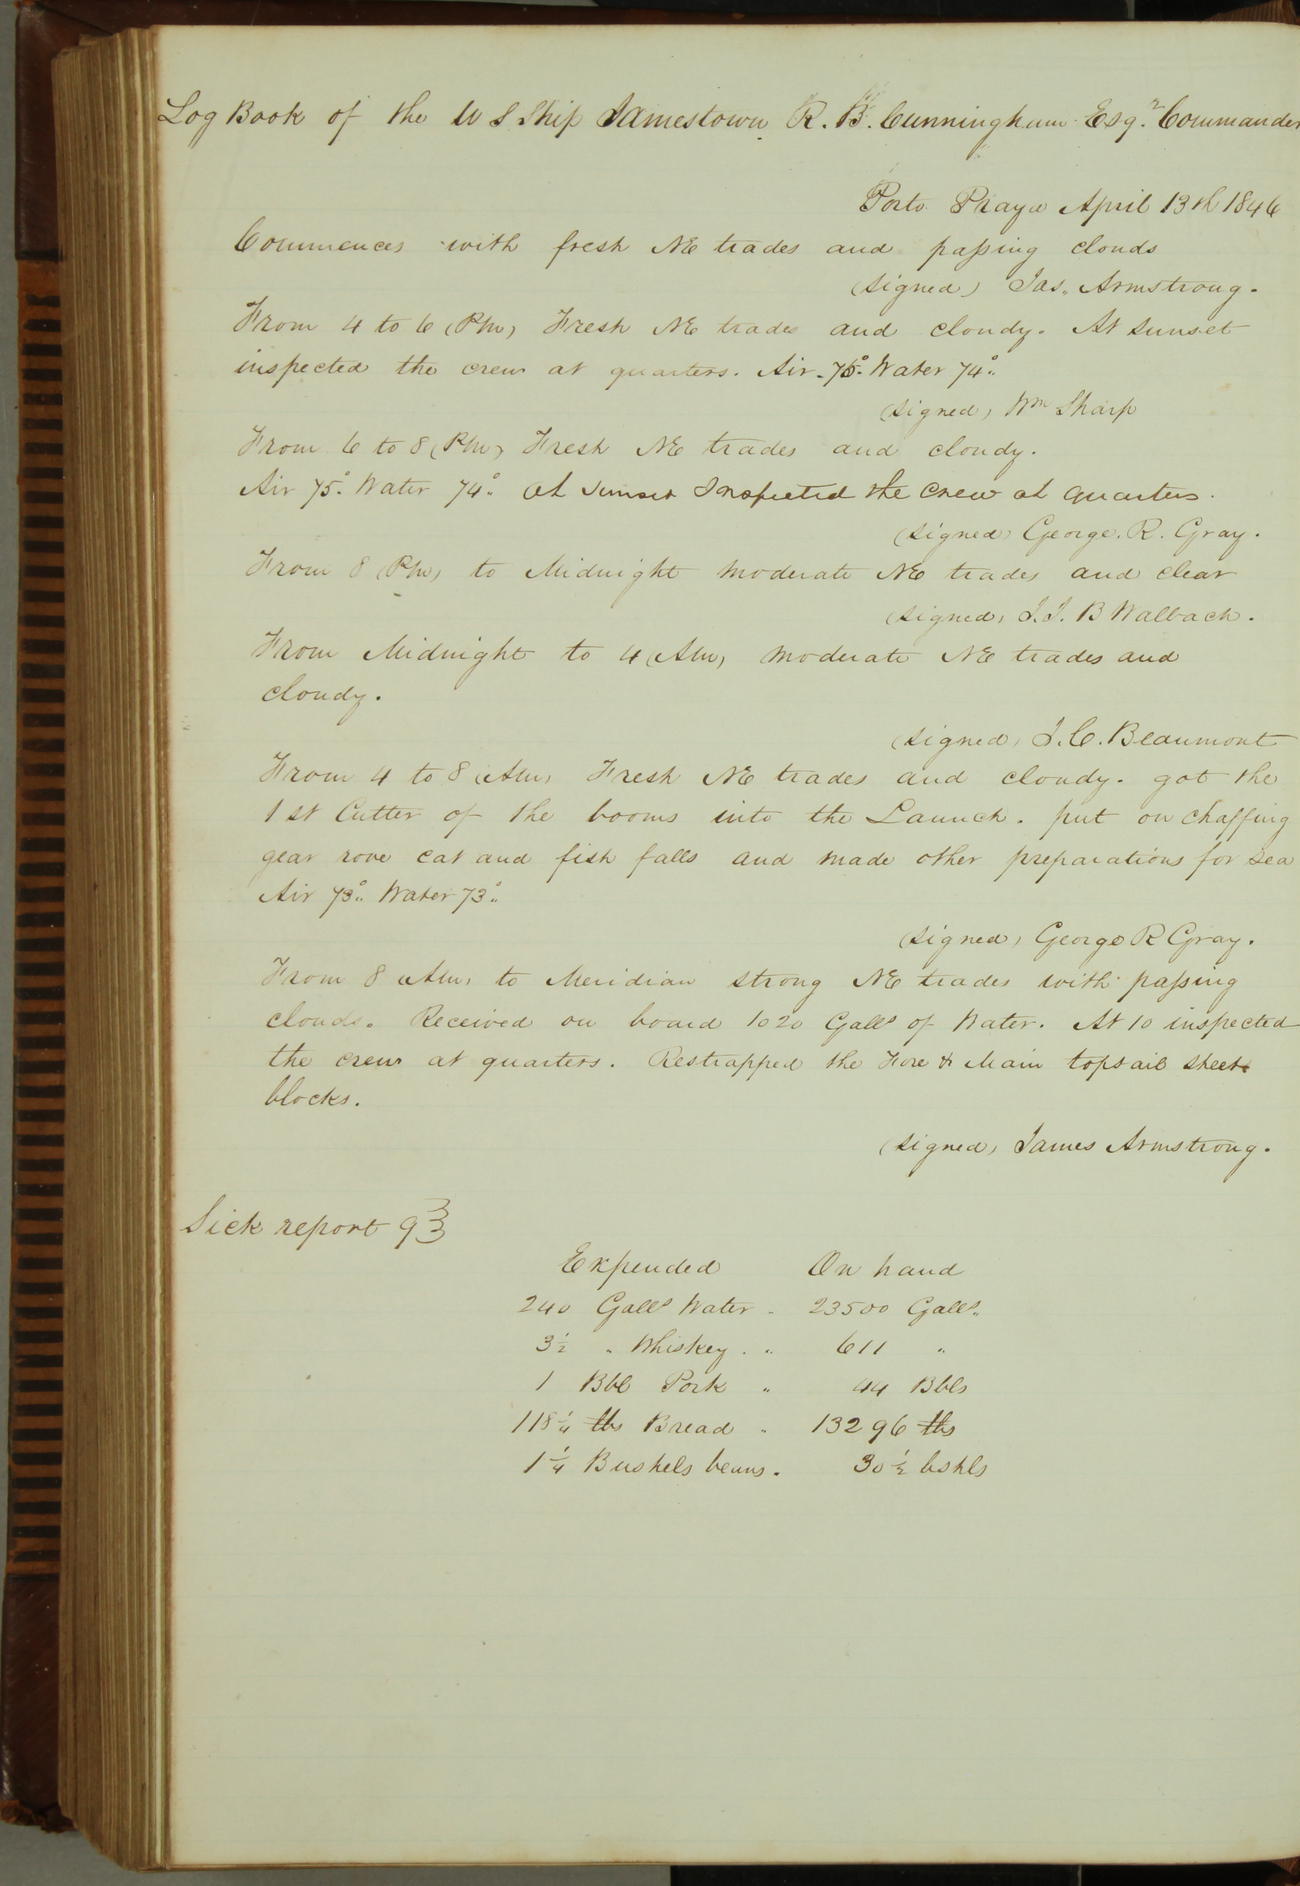 Log Book of the U S Ship Jamestown R. B. Cunningham Esqr. Commander
Porto Praya April 13th 1846
Commences with fresh NE trades and passing clouds
(signed) Jas. Armstrong.
From 4 to 6 (Pm) Fresh NE trades and cloudy. At sunset
inspected the crew at quarters. Air 75° Water 74°
(signed) Wm Sharp
From 6 to 8 (Pm) Fresh NE trades and cloudy.
Air 75° Water 74° at sunset Inspected the crew at quarters.
(signed) George. R. Gray.
From 8 (Pm) to Midnight moderate NE trades and clear
(signed) J. J. B Walbach.
From Midnight to 4 (Am) moderate NE trades and
cloudy.
(signed) J. C. Beaumont
From 4 to 8 (Am) Fresh NE trades and cloudy. got the
1st Cutter of the booms into the Launch. put on chaffing
gear rove cat and fish falls and made other preparations for sea
Air 73° Water 73°
(signed) George R Gray.
From 8 (Am) to Meridian strong NE trades with passing
clouds. Received on board 1020 Galls of Water. At 10 inspected
the crew at quarters. Restrapped the Fore & Main topsail sheet
blocks.
(signed) James Armstrong.
Sick report 9 3/3
Expended On hand
240 Galls Water 23500 Galls
3½ " Whiskey " 611 "
1 Bbl Pork " 44 Bbls
118¼ lbs Bread " 13296 lbs
1¼ Bushels beans. 30½ bshls